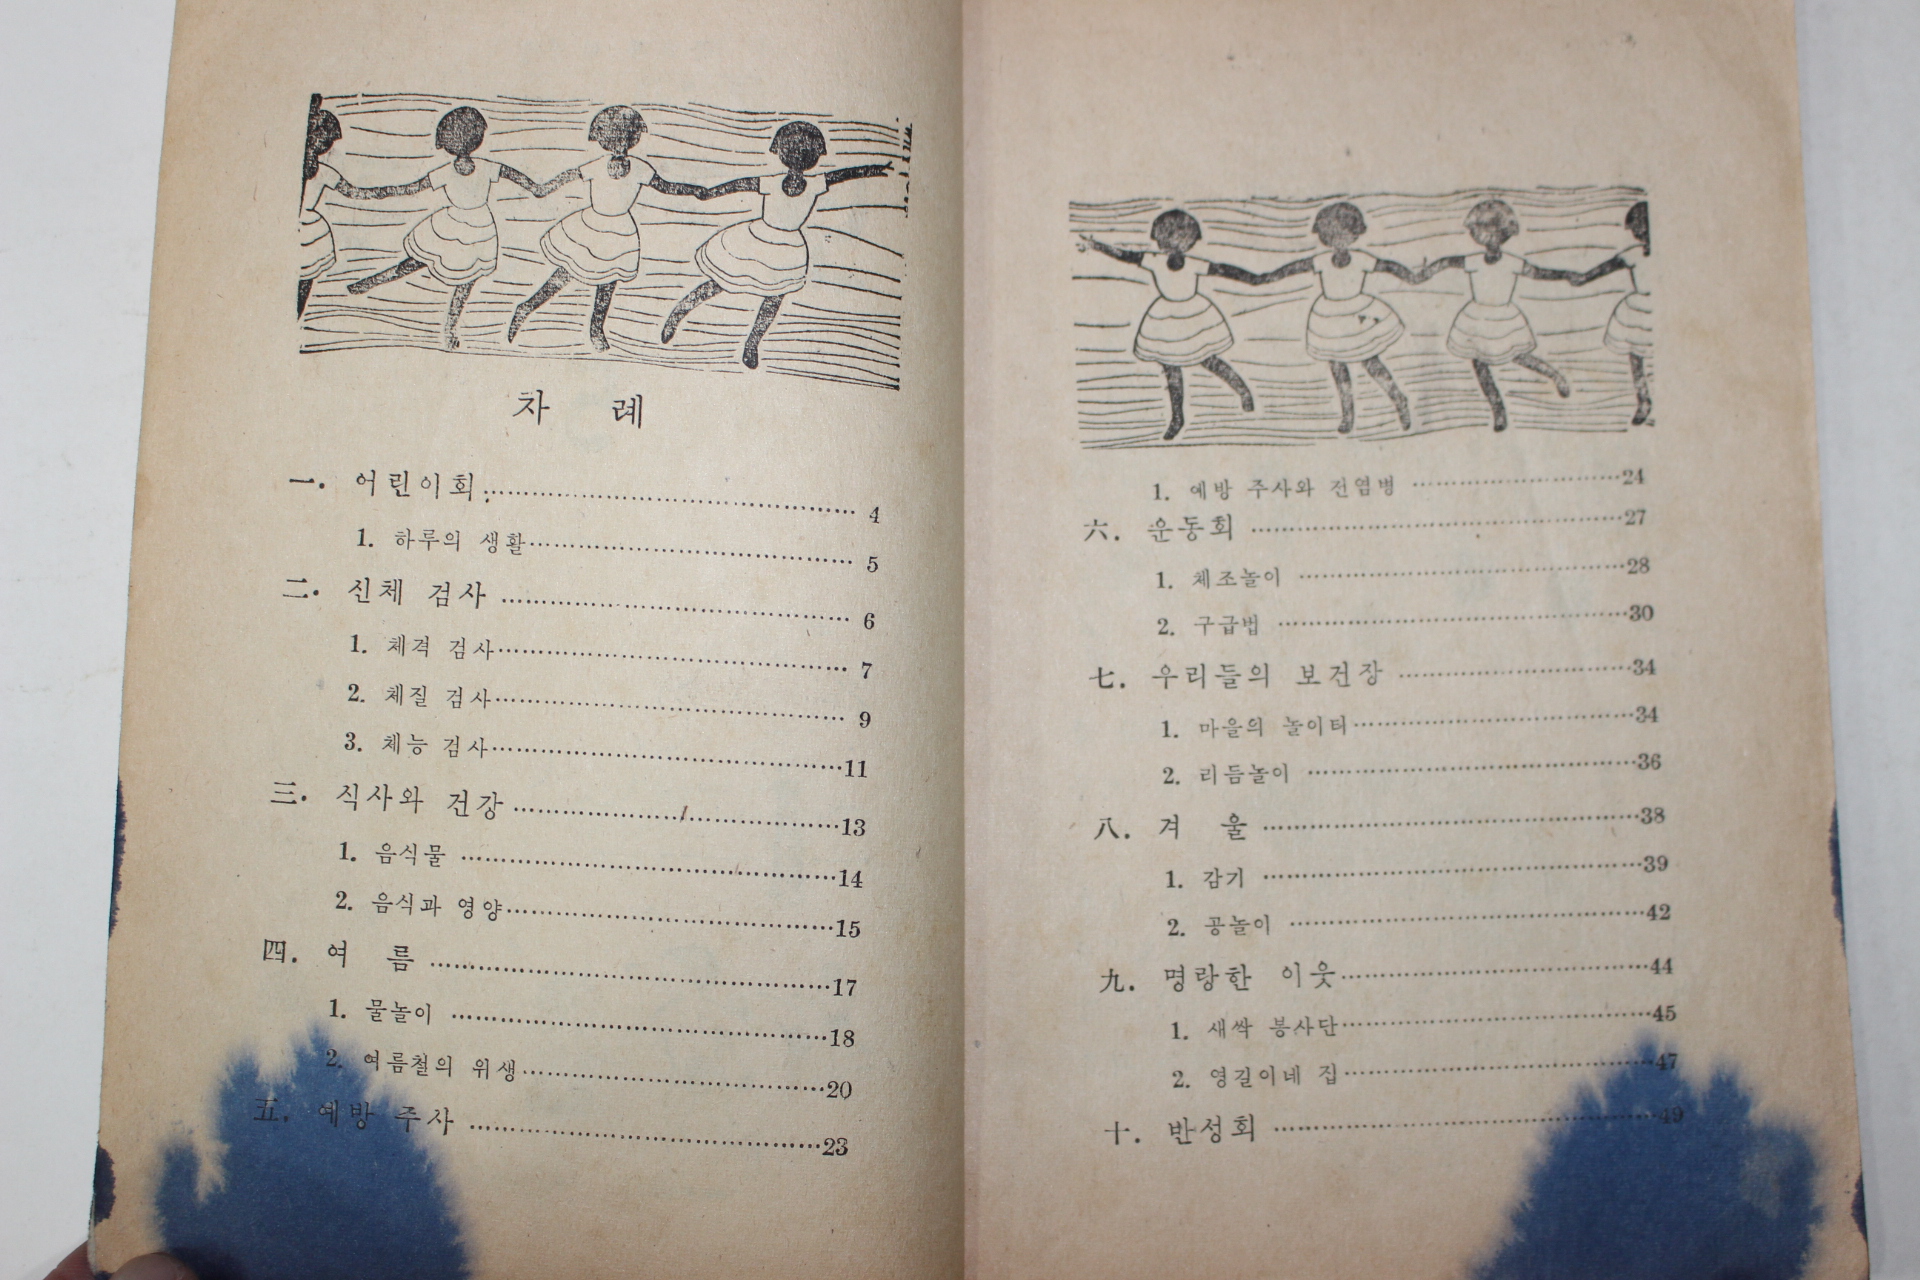 차 례
一. 어린이회 4
1. 하루의 생활 5
二. 신체 검사 6
1. 체격 검사 7
2. 체질 검사 9
3. 체능 검사 11
三. 식사와 건강 13
1. 음식물 14
2. 음식과 영양 15
四. 여 름 17
1. 물놀이 18
2. 여름철의 위생 20
五. 예방 주사 23
1. 예방 주사와 전염병 24
六. 운동회 27
1. 체조놀이 28
2. 구급법 30
七. 우리들의 보건장 34
1. 마을의 놀이터 34
2. 리듬놀이 36
八. 겨 울 38
1. 감기 39
2. 공놀이 42
九. 명랑한 이웃 44
1. 새싹 봉사단 45
2. 영길이네 집 47
十. 반성회 49